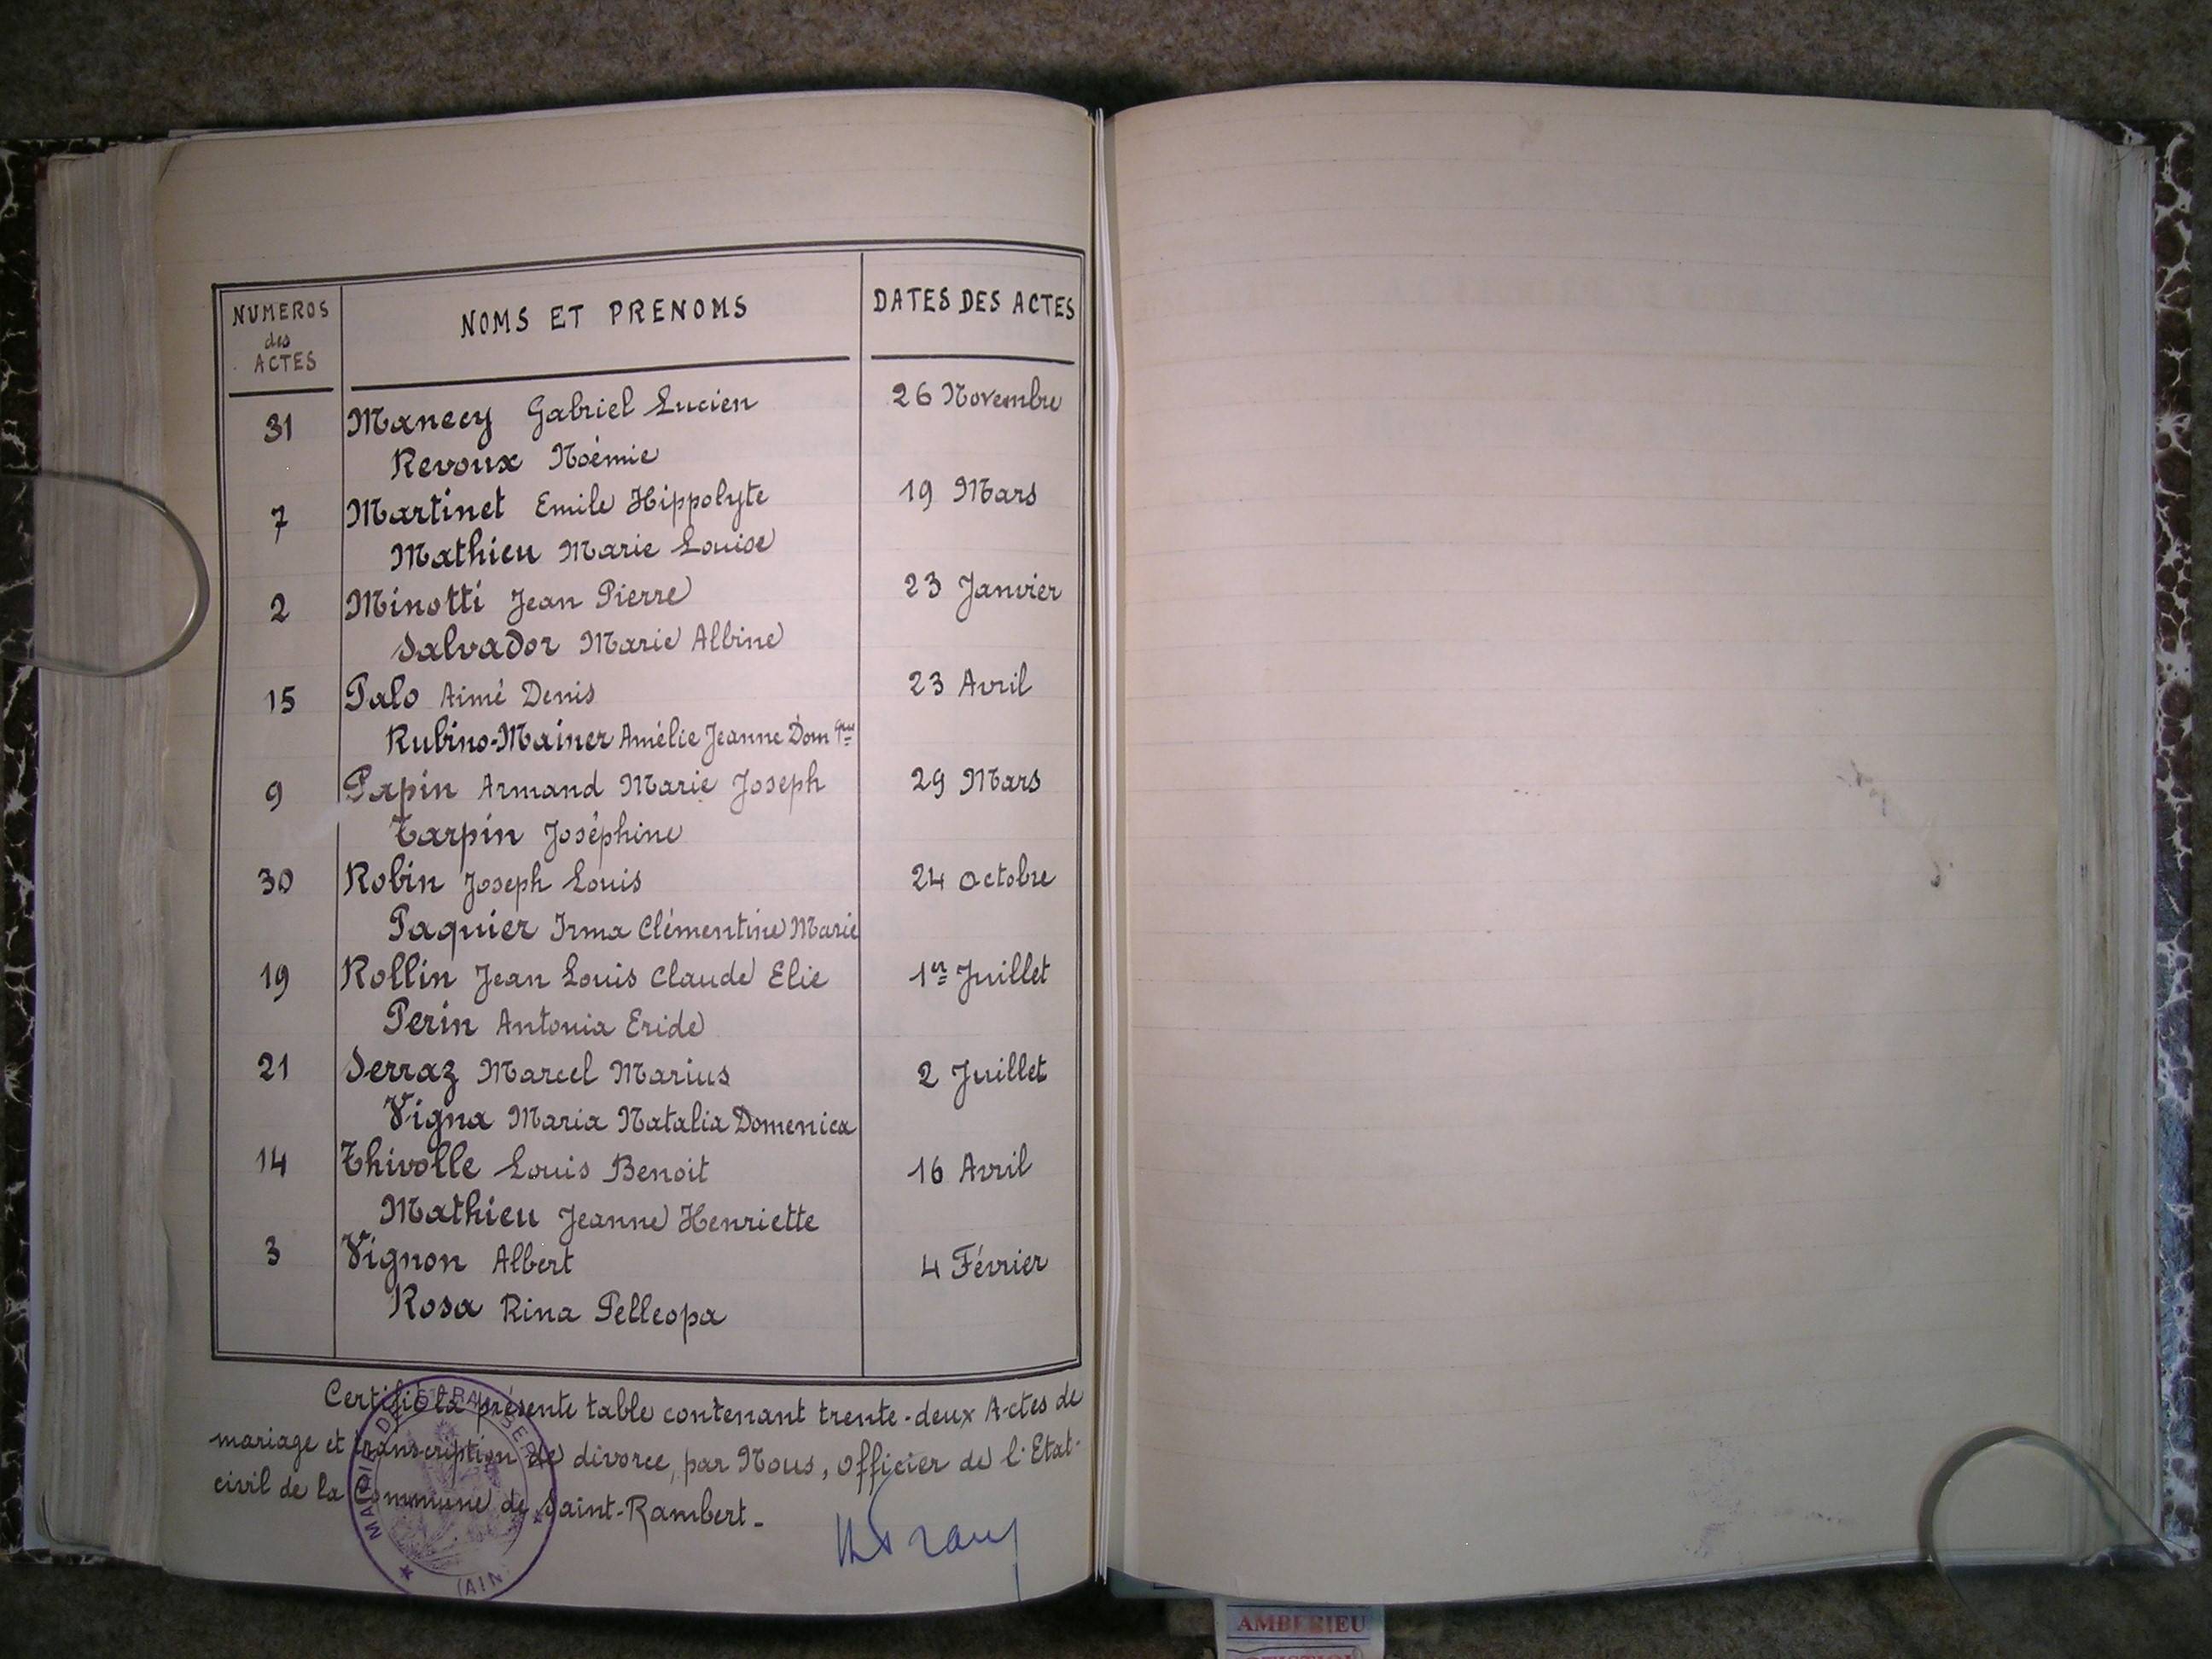 NUMEROS
des
ACTES
NOMS ET PRENOMS
DATES DES ACTES
31 Manecy Gabriel Lucien 26 Novembre
Revoux Noémie
7 Martinet Emile Hippolyte 19 Mars
Mathieu Marie Louise
2 Minotti Jean Pierre 23 Janvier
Salvador Marie Albine
15 Palo Aimé Denis 23 Avril
Rubino-Mainer Amélie Jeanne Dom que
9 Papin Armand Marie Joseph 29 Mars
Tarpin Joséphine
30 Robin Joseph Louis 24 Octobre
Paquier Irma Clémentine Marie
19 Rollin Jean Louis Claude Elie 1er Juillet
Perin Antonia Eride
21 Serraz Marcel Marius 2 Juillet
Vigna Maria Natalia Domenica
14 Thivolle Louis Benoit 16 Avril
Mathieu Jeanne Henriette
3 Vignon Albert 4 Février
Rosa Rina Pelleopa
Certifié la présente table contenant trente-deux Actes de
mariage et transcription de divorce, par Nous, Officier de l'Etat-
civil de la Commune de Saint-Rambert.
MAIRIE DE ST RAMBERT
(AIN)
AMBERIEU